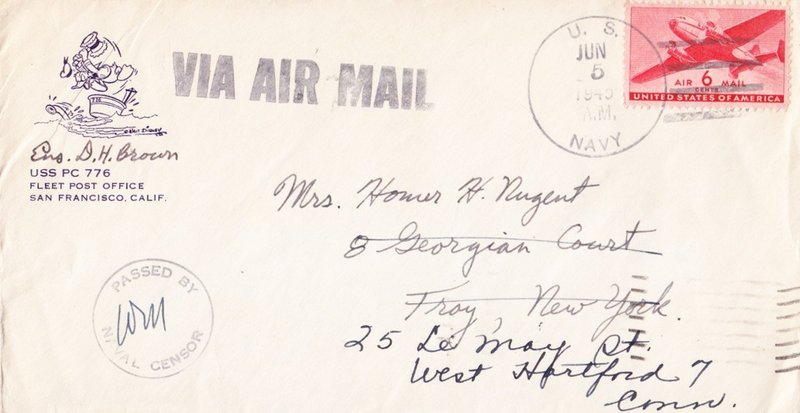 VIA AIR MAIL
U. S.
JUN
5
1945
A.M.
NAVY
AIR 6 MAIL
CENTS
UNITED STATES OF AMERICA
776
© Walt Disney
Ens. D. H. Brown
USS PC 776
FLEET POST OFFICE
SAN FRANCISCO, CALIF.
Mrs. Homer H. Nugent
8 Georgian Court
Troy, New York.
25 Le May St.
West Hartford 7
Conn.
PASSED BY
NAVAL CENSOR